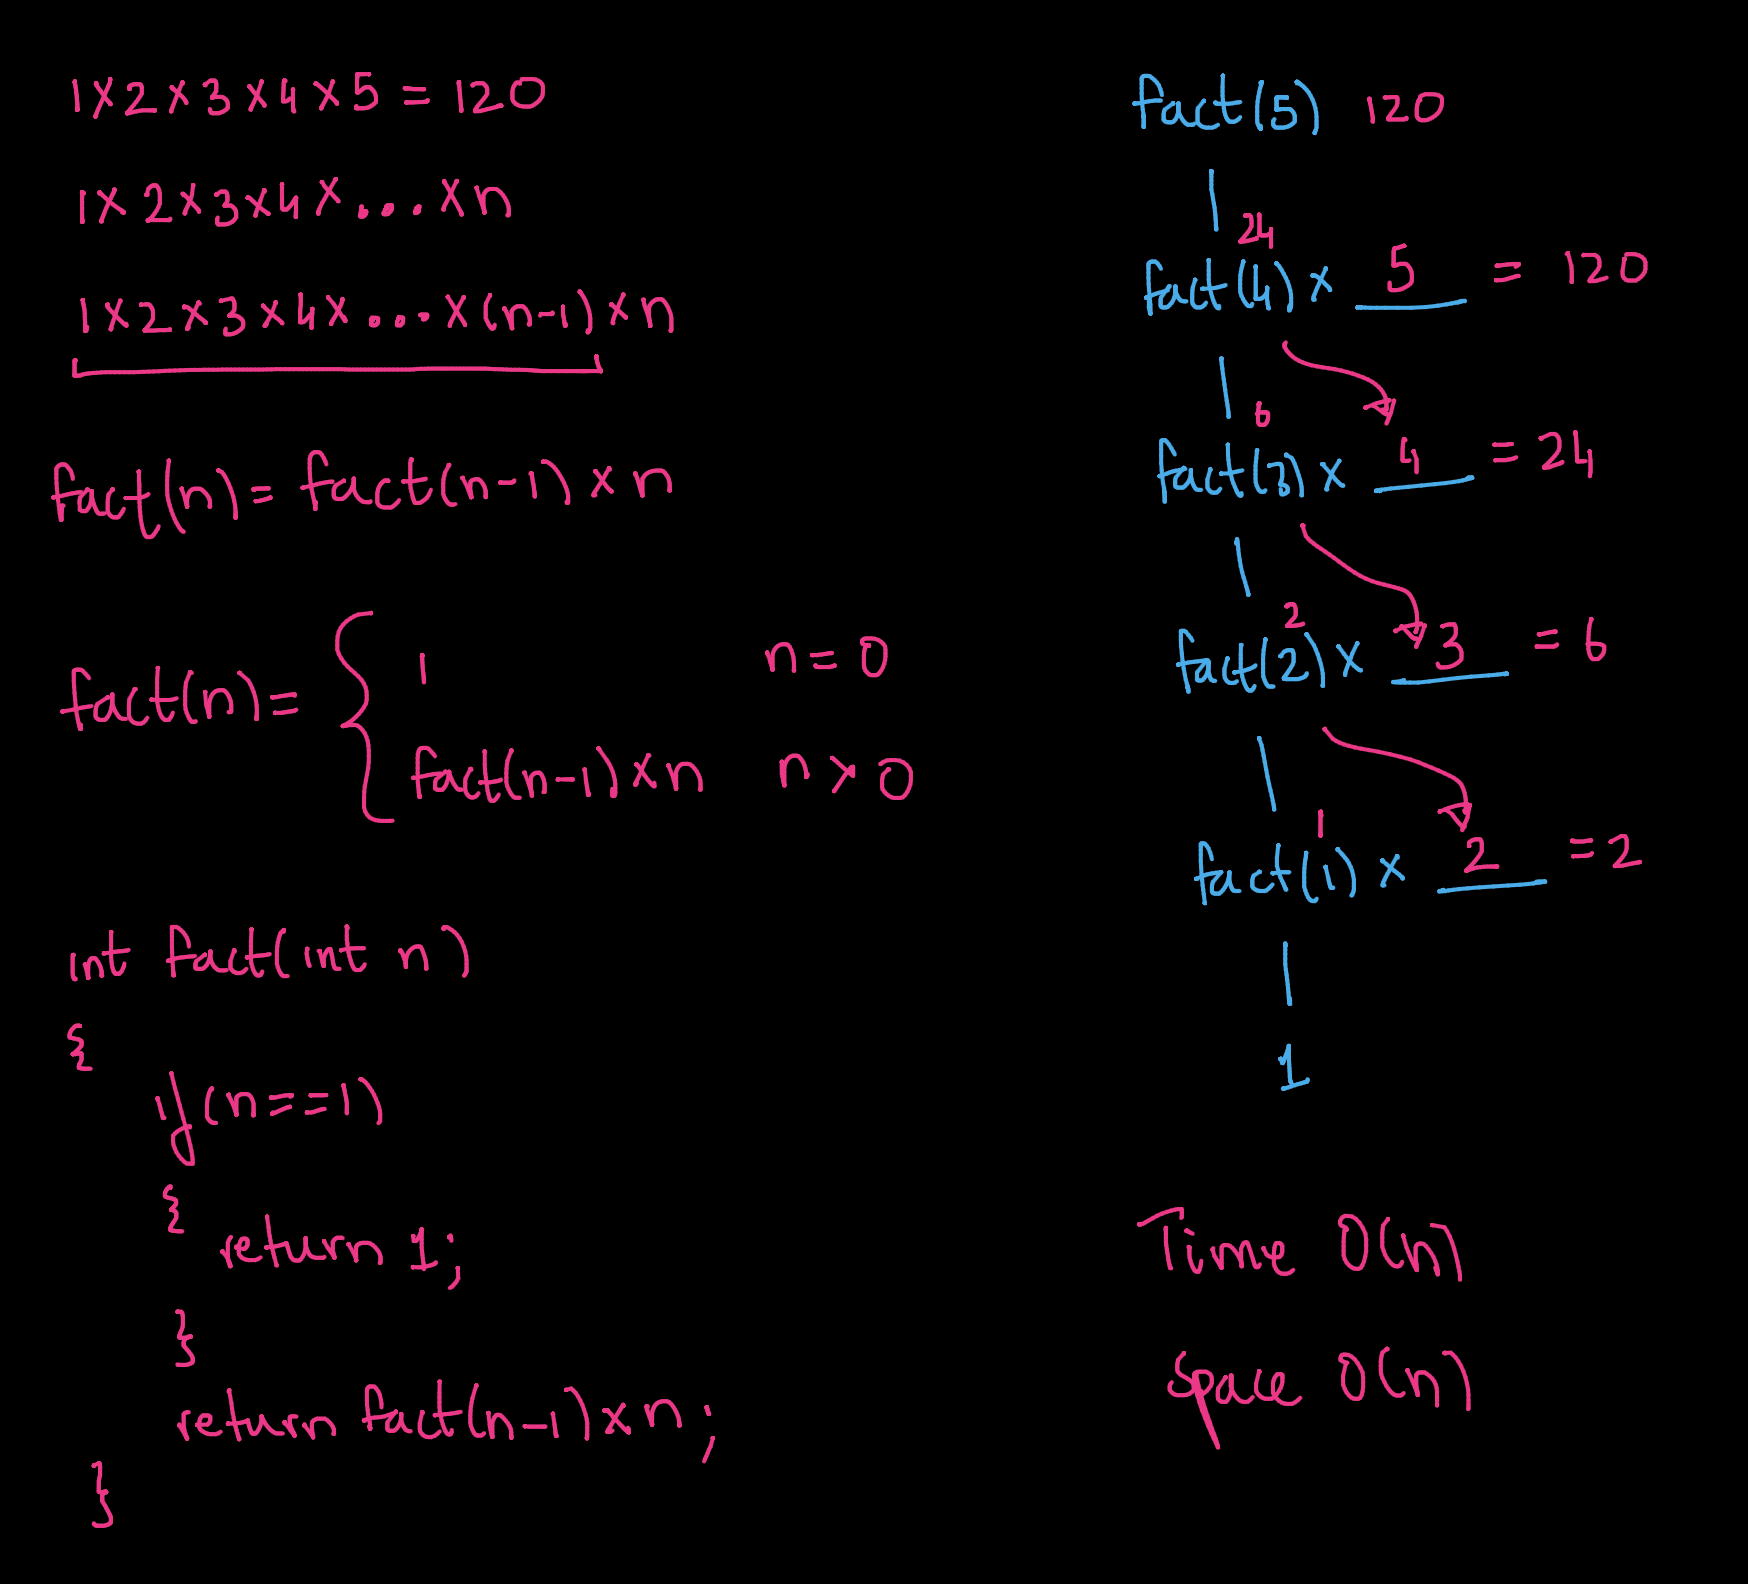 1×2×3×4×5 = 120
1×2×3×4×...×n
1×2×3×4×...×(n-1)×n
fact(n) = fact(n-1) × n
fact(n) = {
1 n = 0
fact(n-1) × n n > 0
int fact(int n)
{
if(n==1)
{
return 1;
}
return fact(n-1) × n;
}
fact(5) 120
24
fact(4) × 5 = 120
6
fact(3) × 4 = 24
2
fact(2) × 3 = 6
1
fact(1) × 2 = 2
1
Time O(n)
Space O(n)